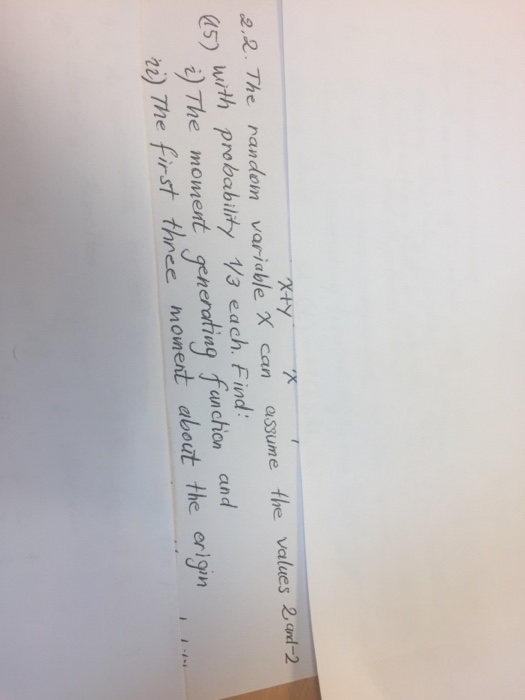 x+y x
2.2. The random variable X can assume the values 2 and -2
(15) with probability 1/3 each. Find:
i) The moment generating function and
ii) The first three moment about the origin